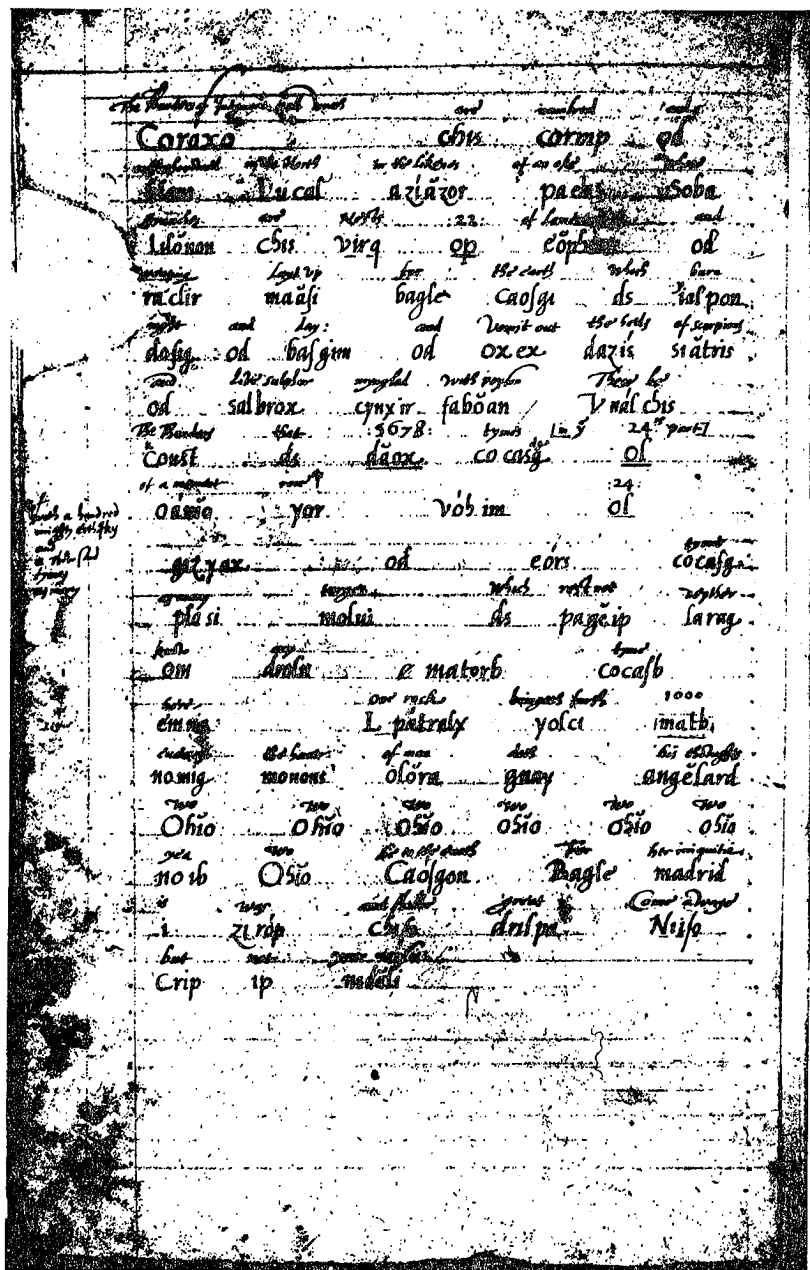 The Thunders of Judgment and wrath are numbred and
Coráxo chis cormp od
in the North in the likenes of an oke whose
blans Lucal aziázor paeb Soba
branches are Nests 22: of and
Lilŏnon chis virq op eŏphan od
layd vp for the earth Which burn
ráclir maăsi bagle Caosgi ds ialpon
night and day: and Vomit out the heds of scorpions
dosig od basgim od oxex dazís siătris
and live sulphur myngled with poyson These be
od salbrox cynxir fabŏan Vnál chis
The Thunders that 5678: tymes in yͤ 24th part
Const ds dăox cocasg ol
of a moment rore 24
oánio yor vóhim ol
with a hundred mighty erthquakes
and
a thousand
tymes
as many
tymes
gizyax od eórs cocasg
as many surges Which rest not neyther
plósi molui ds pagĕip larag
know any tyme
om droln matórb cocasb
here One rock bringeth furth 1000
émna L pătralx yolci matb
euen as the harte of man doth his thowghts
nomig monons olŏra gnay angĕlard
Wo Wo Wo Wo Wo Wo
Ohĭo Ohĭo Ohĭo Ohĭo ohĭo ohĭo
yea Wo be to the earth For her iniquitie
noib Ohĭo Caósgon Bagle madrid
is Was and shalbe great Come away
i ziróp chiso drilpa Niiso
but not your noyses
Crip ip nidăli